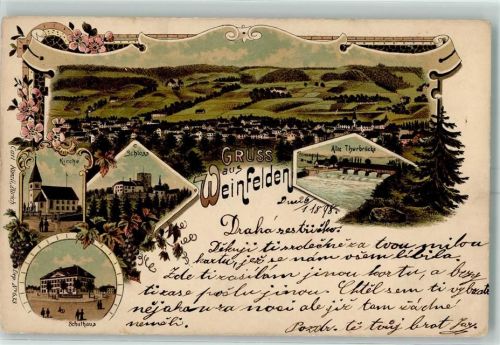 Kirche
Schloss
GRUSS
aus
Weinfelden
Alte Thurbrücke
Schulhaus
1 1898.
Drahá sestřičko.
Děkuji ti srdečně za tvou milou
kartu, jež se nám všem líbila.
Zde ti zasílám jinou kartu, a brzy
ti zase pošlu jinou. Chtěl sem ti
nějakou za noci ale již tam žádné
neměli.
Pozdr. tě tvůj brat